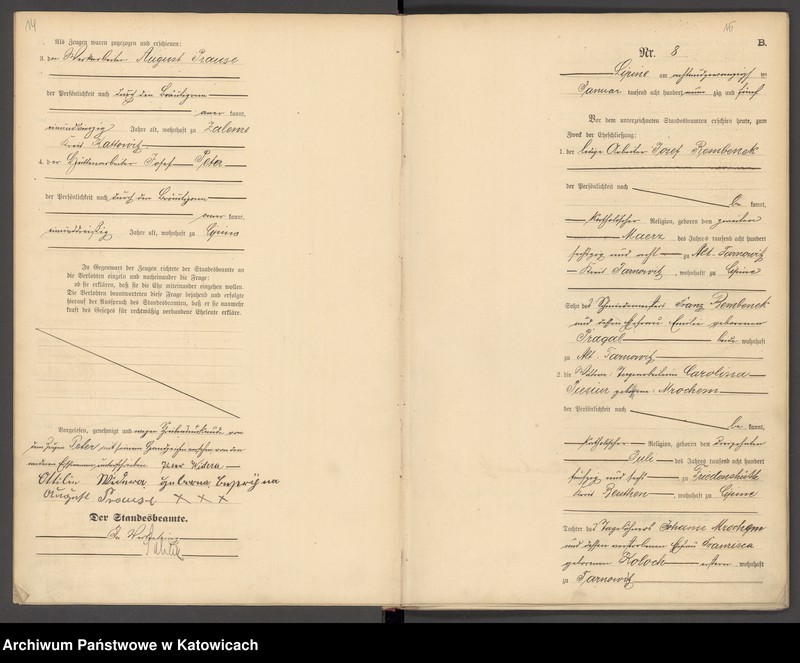 14
Als Zeugen waren zugezogen und erschienen:
3. der Werkarbeiter August Prause
der Persönlichkeit nach durch den Bräutigam
aner kannt,
einundvierzig Jahre alt, wohnhaft zu Zalenze
Kreis Kattowitz
4. der Hüttenarbeiter Josef Peter
der Persönlichkeit nach durch den Bräutigam
aner kannt,
Jahre alt, wohnhaft zu Lipine
In Gegenwart der Zeugen richtete der Standesbeamte an
die Verlobten einzeln und nacheinander die Frage:
ob sie erklären, daß sie die Ehe miteinander eingehen wollen.
Die Verlobten beantworteten diese Frage bejahend und erfolgte
hierauf der Ausspruch des Standesbeamten, daß er sie nunmehr
kraft des Gesetzes für rechtmäßig verbundene Eheleute erkläre.
Vorgelesen, genehmigt und wegen Schreibunkunde von
dem Zeugen Peter mit seinem Handzeichen versehen von den
anderen Erschienenen unterschrieben Peter Widera
Ottilie Widera geborene
August Prause XXX
Der Standesbeamte.
In Vertretung
15
B.
Nr. 8
Lipine am achtundzwanzigs ten
Januar tausend acht hundert neun zig und fünf
Vor dem unterzeichneten Standesbeamten erschien heute, zum
Zweck der Eheschließung:
1. der ledige Arbeiter Josef Rembenek
der Persönlichkeit nach
be kannt,
katholischer Religion, geboren den zweiten
Maerz des Jahres tausend acht hundert
sechszig und acht zu Alt-Tarnowitz
Kreis Tarnowitz, wohnhaft zu Lipine
Sohn des Schmiedemeister Franz Rembenek
und dessen Ehefrau Emilie geborenen
Pragal beide wohnhaft
zu Alt-Tarnowitz
2. die Wittwe, Tagearbeiterin Carolina
geborene Mrochem
der Persönlichkeit nach
be kannt,
katholischer Religion, geboren den dreizehnten
Juli des Jahres tausend acht hundert
fünfzig und sechs zu Friedenshütte
Kreis Beuthen, wohnhaft zu Lipine
Tochter des Tagelöhners Johann Mrochem
und dessen verstorbenen Ehefrau Franzisca
geborenen Koloch ersterer wohnhaft
zu Tarnowitz
Archiwum Państwowe w Katowicach